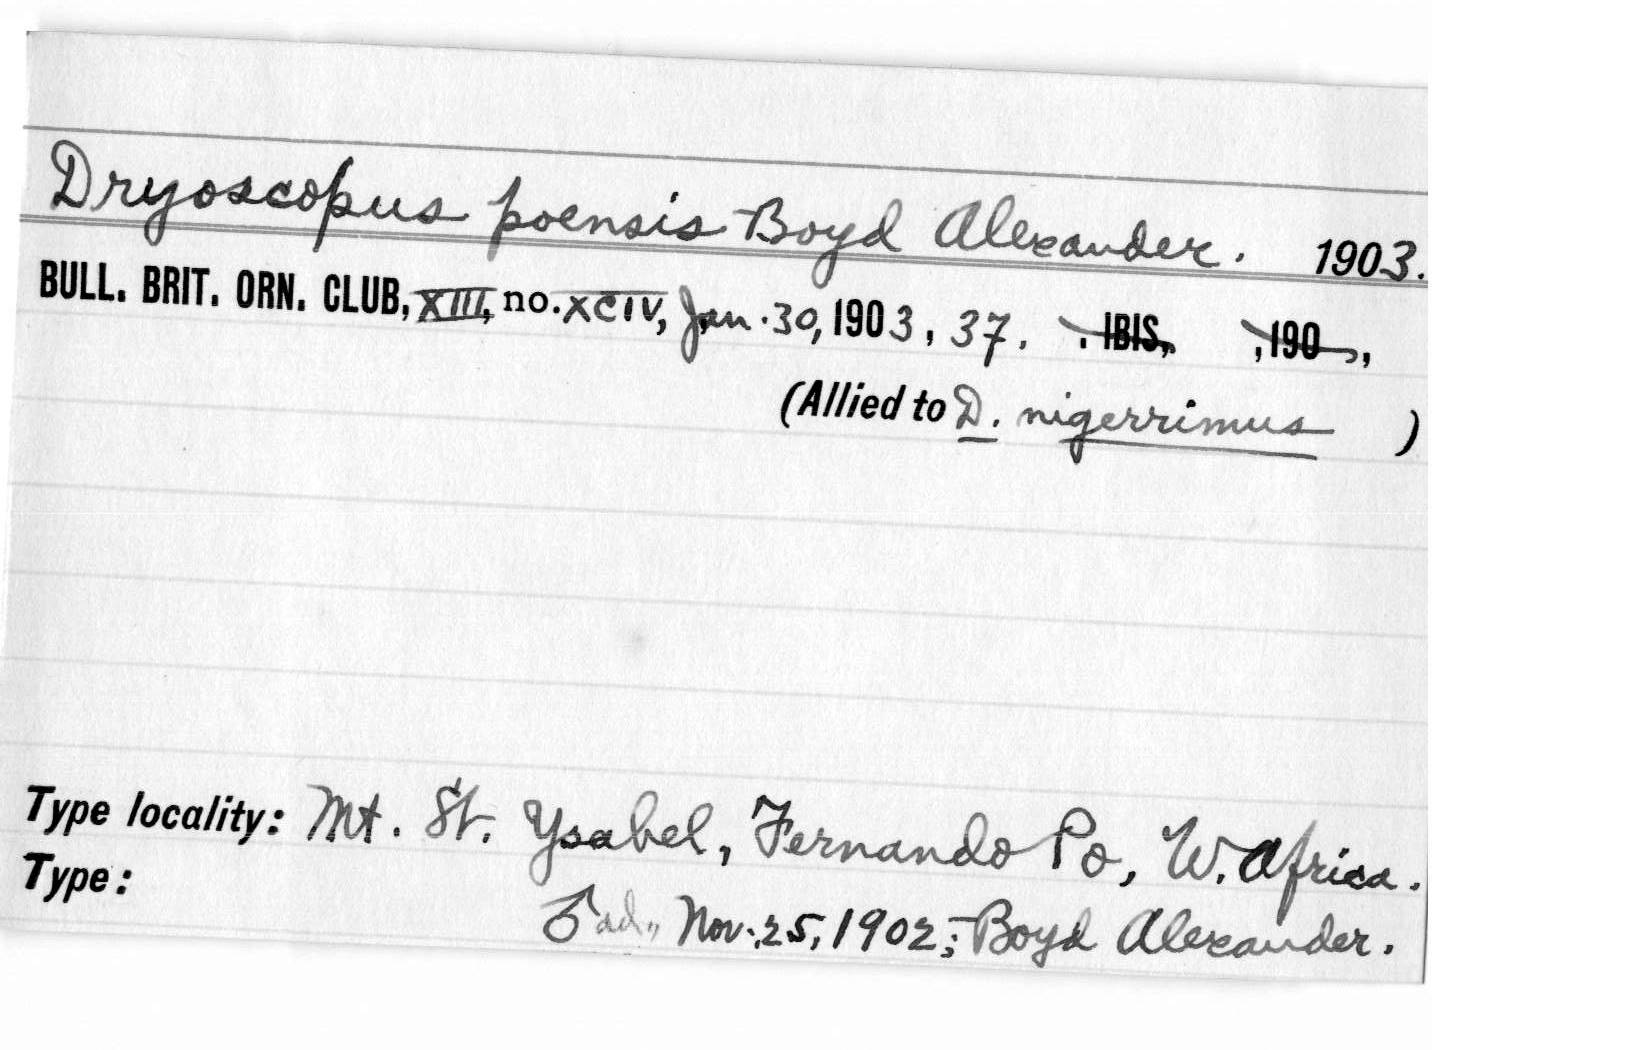 Dryoscopus poensis Boyd Alexander. 1903.
BULL. BRIT. ORN. CLUB, XIII, no. XCIV, Jan. 30, 1903, 37. . IBIS, , 190 ,
(Allied to D. nigerrimus )
Type locality: Mt. St. Ysabel, Fernando Po, W. Africa.
Type:
♂ ad., Nov. 25, 1902; Boyd Alexander.